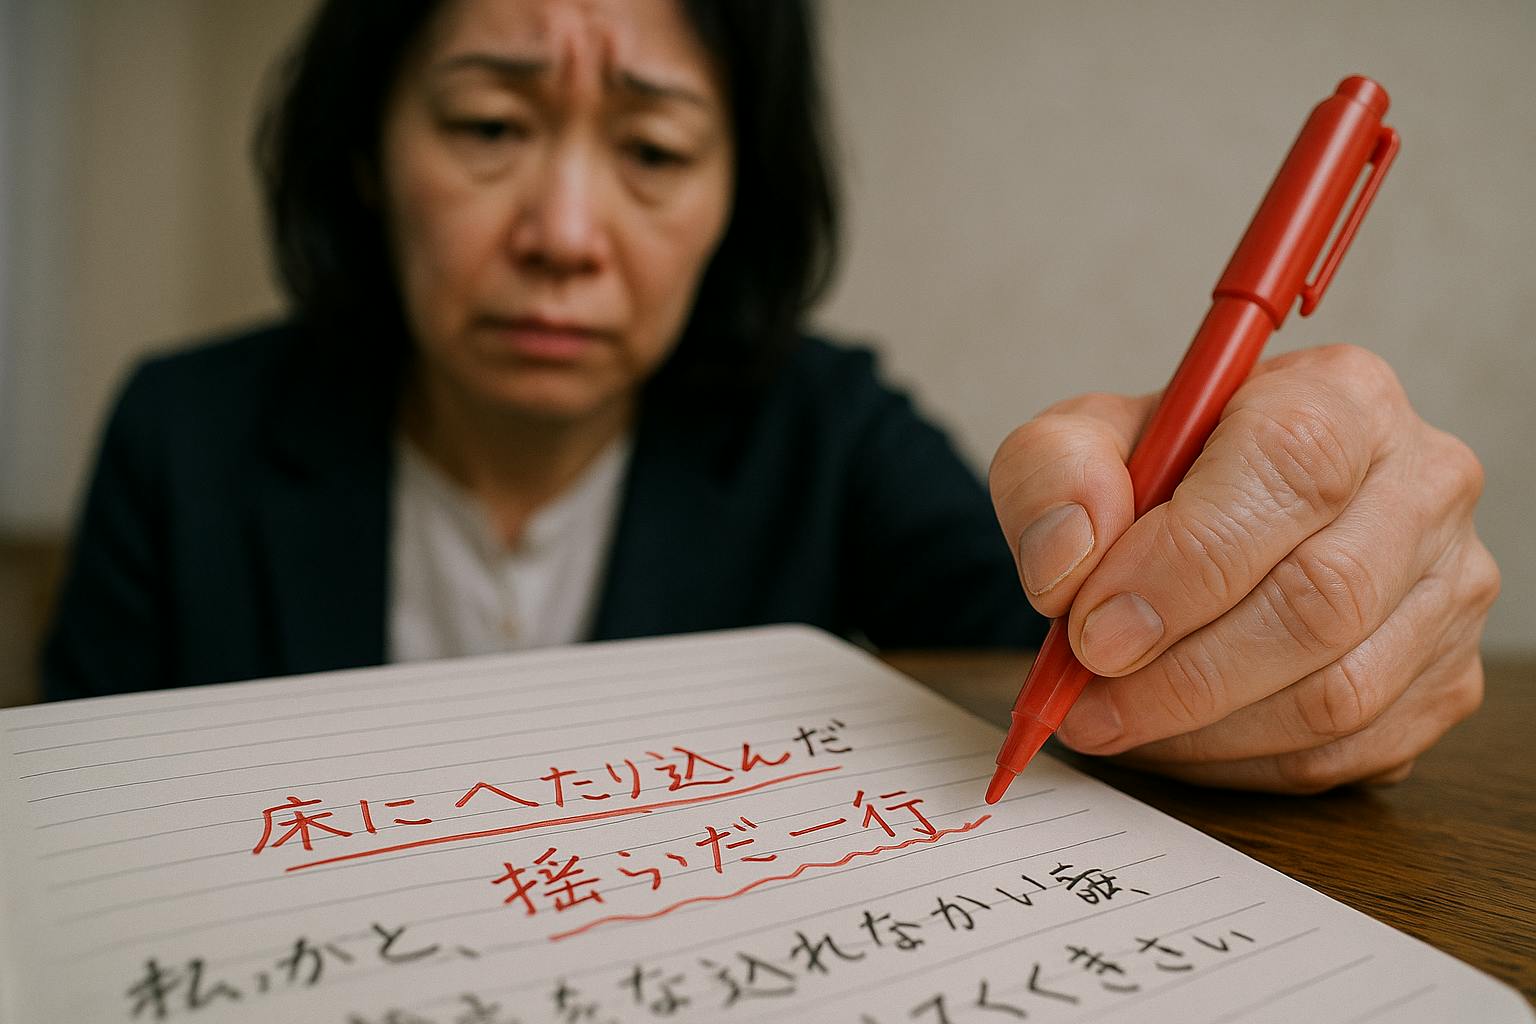 床にへたり込んだ
揺らいだ一行
私、かと、
な込れなかい
くくきさい